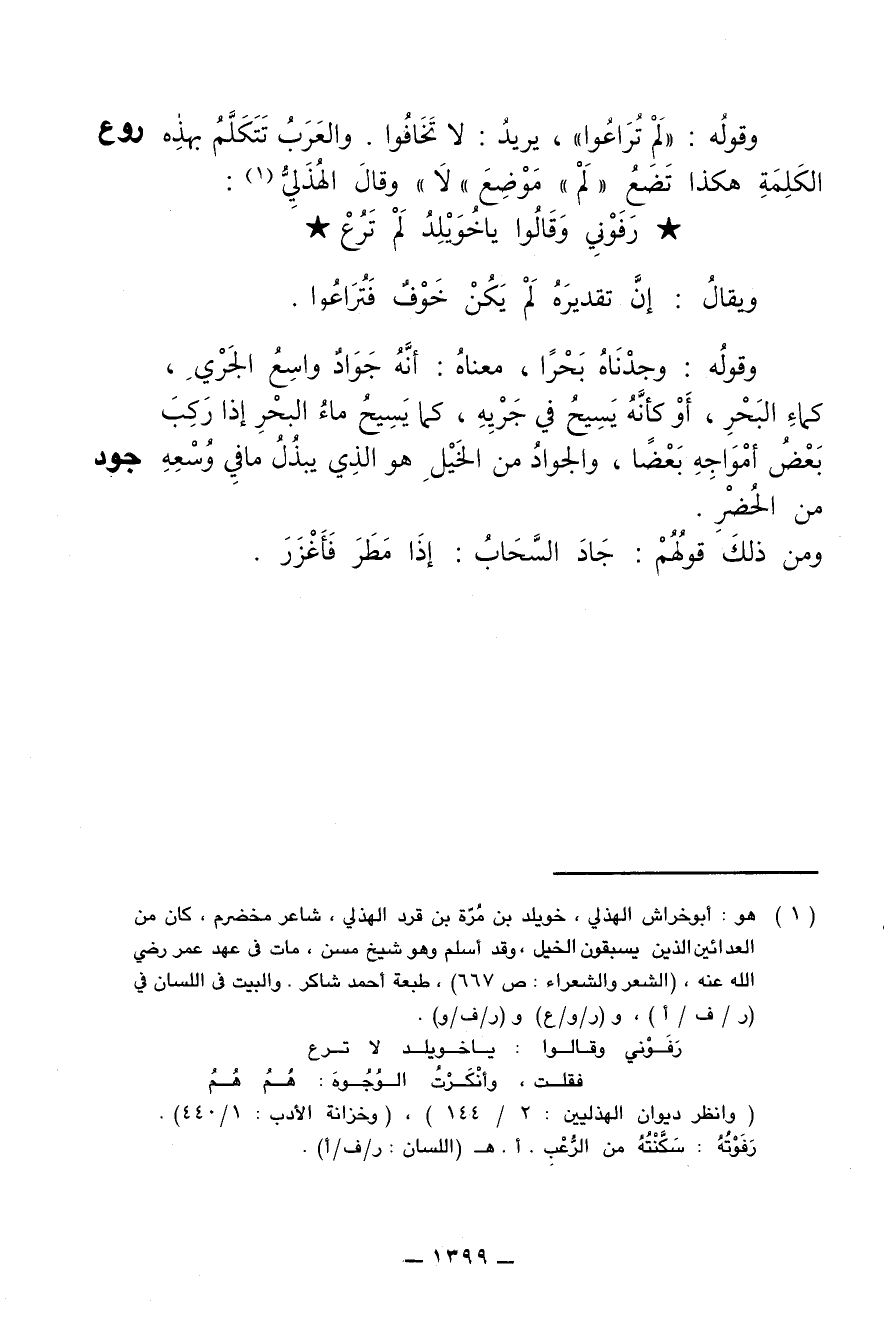 وقولُه : «لَمْ تُرَاعُوا» ، يريدُ : لا تَخَافُوا . والعَرَبُ تَتَكَلَّمُ بهذِه روع
الكَلِمَةِ هكذا تَضَعُ «لَمْ» مَوْضِعَ «لَا» وقالَ الهُذَلِيُّ (١) :
★ رَفَوْنِي وَقَالُوا ياخُوَيْلِدُ لَمْ تَرُعْ ★
ويقالُ : إنَّ تقديرَهُ لَمْ يَكُنْ خَوْفٌ فَتُرَاعُوا .
وقولُه : وجدْنَاهُ بَحْرًا ، معناهُ : أنَّهُ جَوَادٌ واسِعُ الجَرْي ِ ،
كماءِ البَحْرِ ، أَوْ كأنَّهُ يَسِيحُ في جَرْيِهِ ، كما يَسِيحُ ماءُ البحْرِ إذا رَكِبَ
بَعْضُ أمْوَاجِهِ بَعْضًا ، والجوادُ من الخَيْل ِ هو الذِي يبذُلُ مافِي وُسْعِهِ جود
من الحُضْرِ .
ومن ذلكَ قولُهُمْ : جَادَ السَّحَابُ : إذَا مَطَرَ فَأَغْزَرَ .
(١) هو : أبوخراش الهذلي ، خويلد بن مُرّة بن قرد الهذلي ، شاعر مخضرم ، كان من
العدائين الذين يسبقون الخيل ، وقد أسلم وهو شيخ مسن ، مات فى عهد عمر رضي
الله عنه ، (الشعر والشعراء : ص ٦٦٧) ، طبعة أحمد شاكر . والبيت فى اللسان في
(ر / ف / أ ) ، و (ر/و/ع) و (ر/ف/و) .
رَفَــوْني وقـالــوا : يــاخــويلــد لا تــرع
فقلــت ، وأنْكَــرْتُ الــوُجُــوهَ : هُــمُ هُــمُ
( وانظر ديوان الهذليين : ٢ / ١٤٤ ) ، (وخزانة الأدب : ٤٤٠/١) .
رَفَوْتُهُ : سَكَّنْتُهُ من الرُّعْبِ . أ . هـ (اللسان : ر/ف/أ) .
ــ ١٣٩٩ ــ